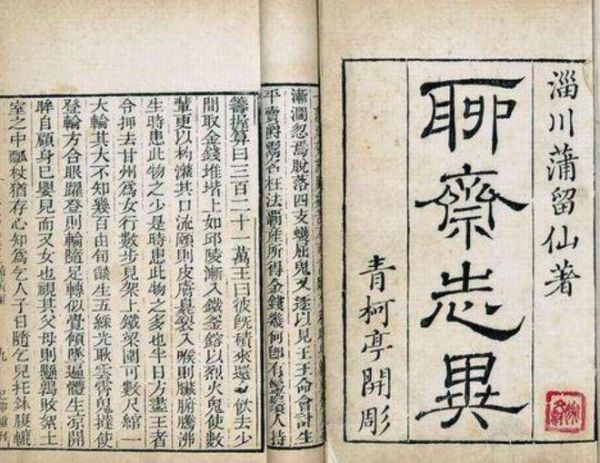 淄川蒲留仙著
聊齋志異
青柯亭開彫
漸濶忽焉脫落四支蠖屈鬼又逐以見王王命會計生
平賣爵鬻名枉法覇產所得金錢幾何卽有鬡鬚人持
籌握算曰三百二十一萬王曰彼旣積來還令飲去少
間取金錢堆堦上如邱陵漸入鐵釜鎔以烈火鬼使數
輩更以杓灌其口流頤則皮膚臭裂入喉則臟腑騰沸
生時患此物之少是時患此物之多也半日方盡王者
令押去甘州爲女行數步見架上鐵梁圍可數尺綰一
火輪其大不知幾百由旬燄生五綵光耿雲霄鬼撻使
登輪方合眼躍登則輪隨足轉似覺傾墜遍體生涼開
眸自顧身已嬰兒而又女也視其父母則懸鶉敗絮土
室之中瓢杖猶存心知爲乞人子日隨乞兒托鉢腹轆